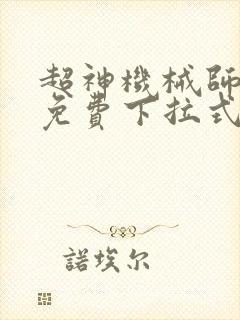 超神機械師
免費下拉式
諾埃尔